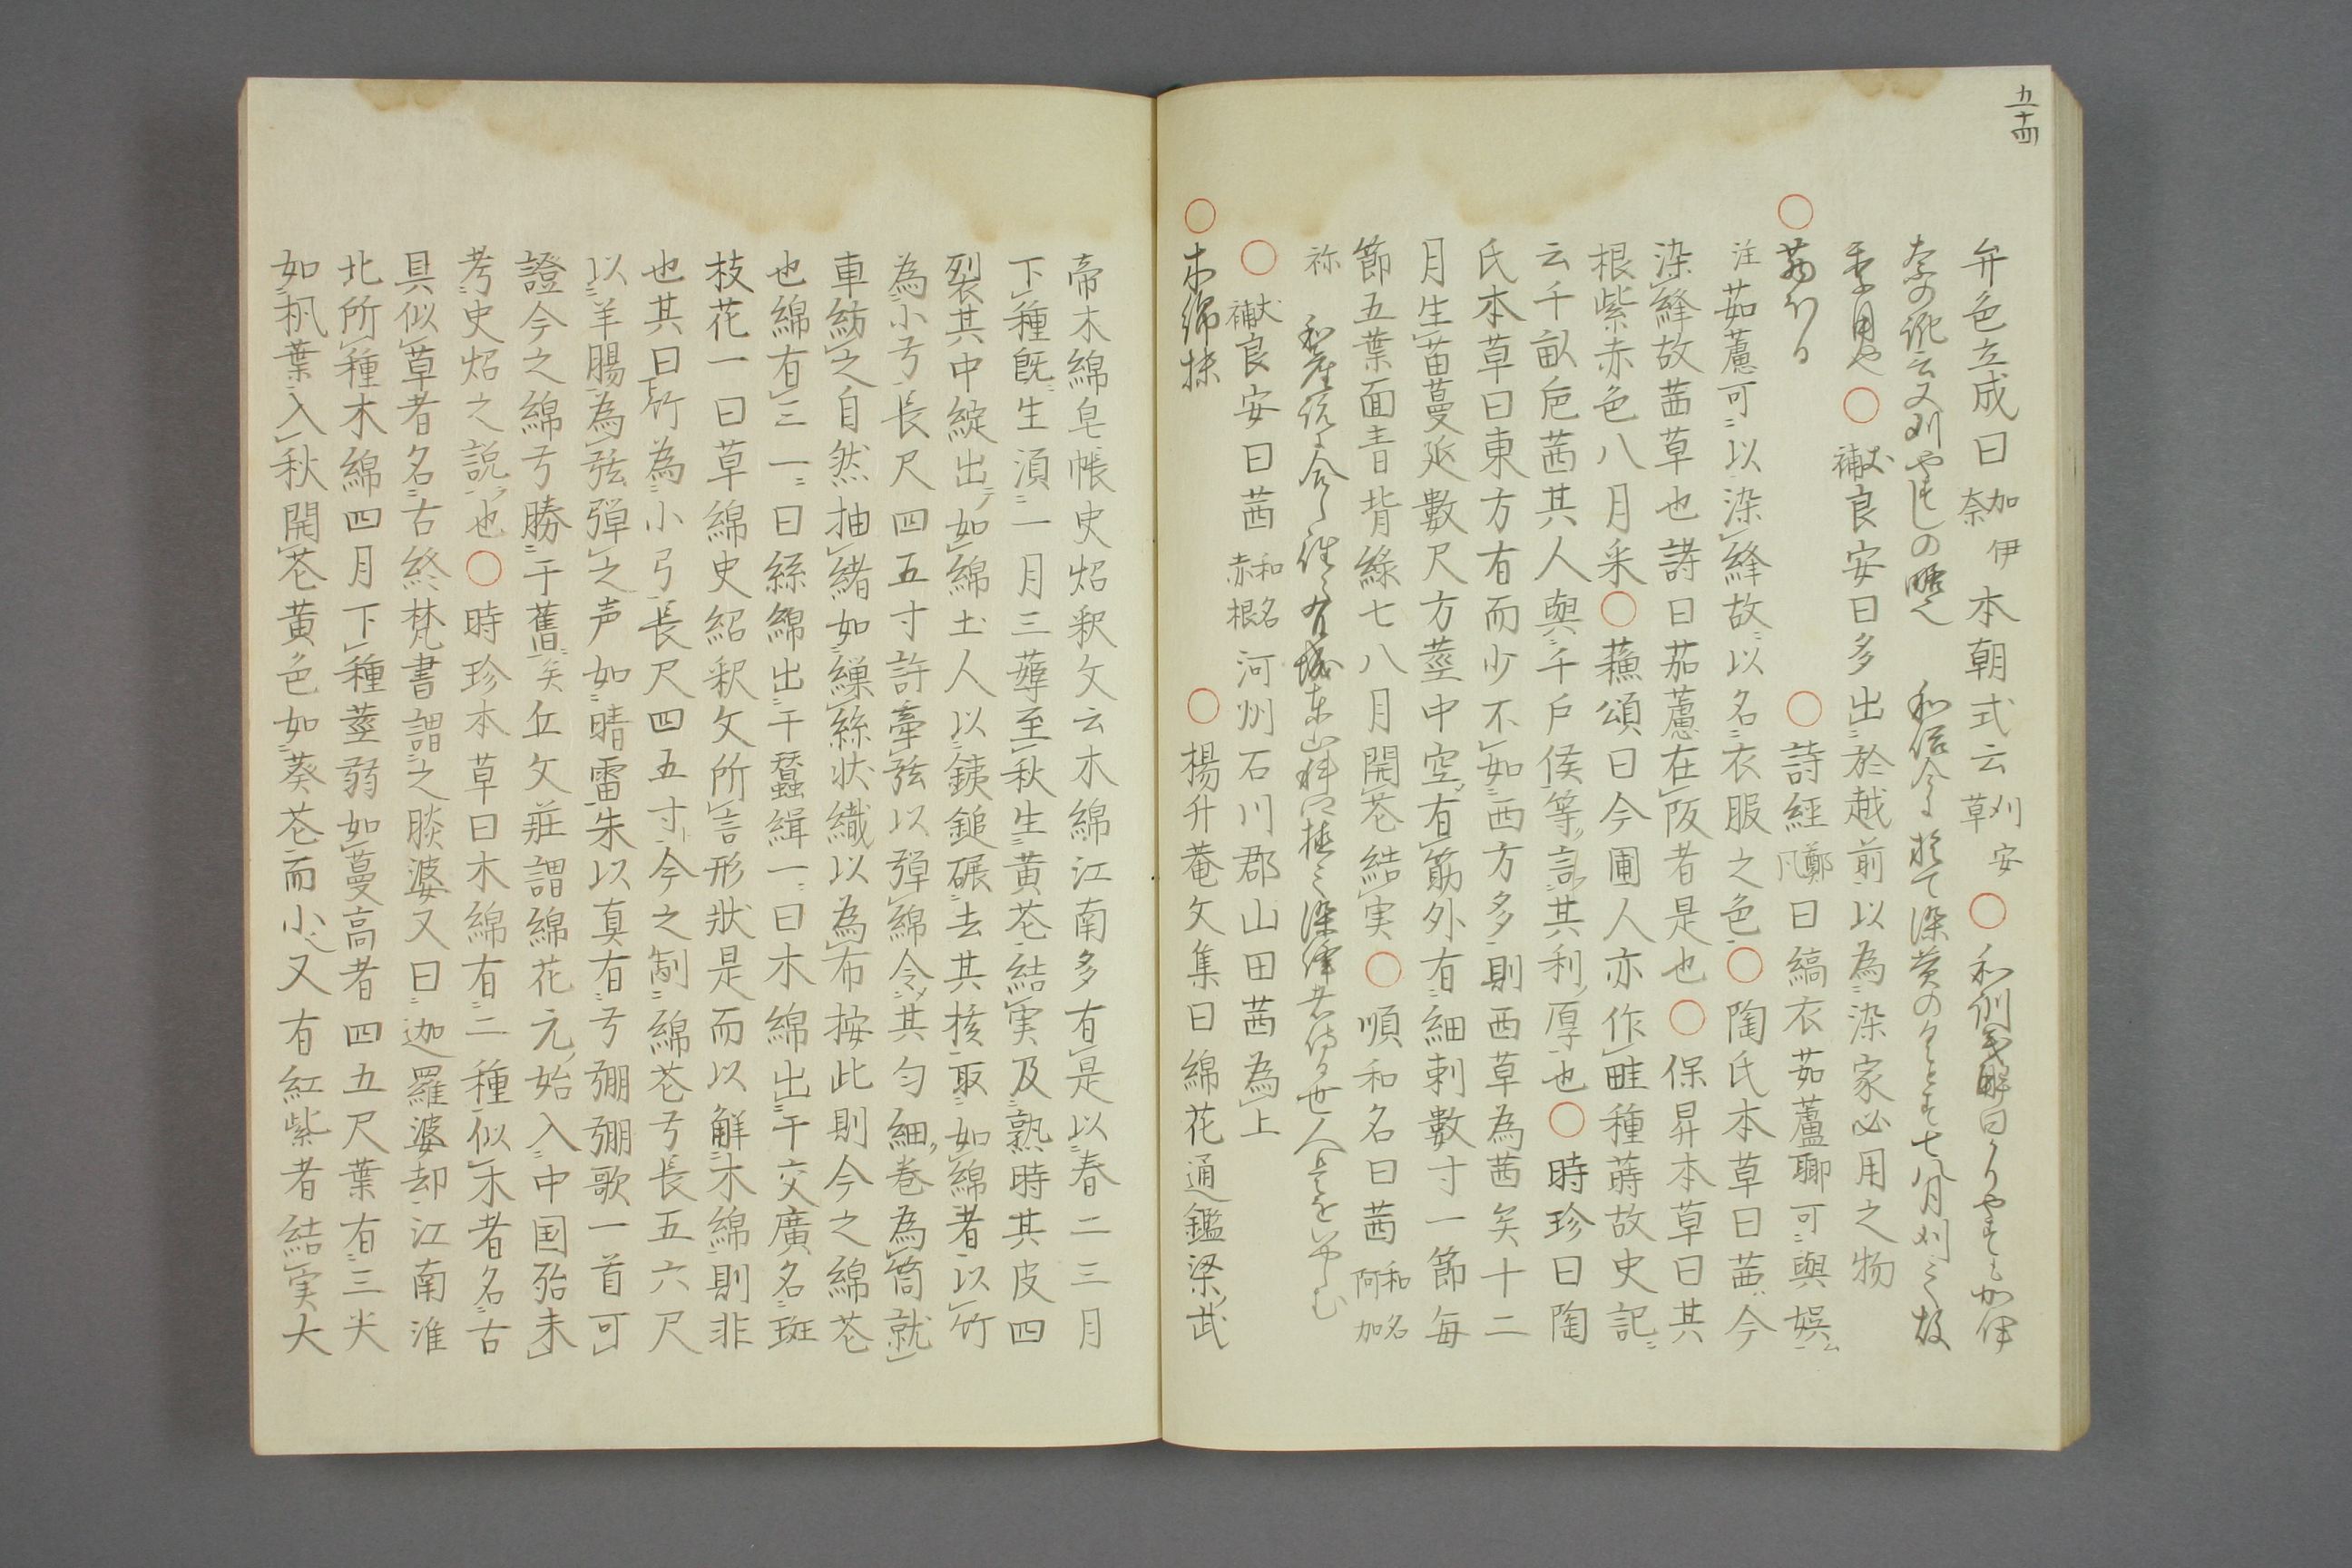 九十四
弁色立成曰加伊奈本朝式云刈安草〇和訓義解曰かりやす加伊
奈の訛云又刈やすしの略也 和俗今に於て染黄のことす七八月刈之故
〇補大良安曰多出於越前以為染家必用之物
〇茜ほる 〇詩経鄭凡曰縞衣茹藘聊可與娯
注茹藘可以染絳故以名衣服之色〇陶氏本草曰茜今
染絳故茜草也詩曰茹藘在阪者是也〇保昇本草曰其
根紫赤色八月采〇蘓頌曰今圃人亦作畦種蒔故史記
云千畝卮茜其人與千戶侯等言其利厚也〇時珍曰陶
氏本草曰東方有而少不如西方多則西草為茜矣十二
月生苗蔓延數尺方莖中空有筋外有細刺數寸一節每
節五葉面青背綠七八月開花結実〇順和名曰茜和名阿加
祢
〇補大良安曰茜和名赤根河州石川郡山田茜為上
〇木綿採 〇楊升菴文集曰綿花通鑑梁武
帝木綿皂帳史炤釈文云木綿江南多有是以春二三月
下種既生湏一月三薅至秋生黄花結実及熟時其皮四
裂其中綻出如綿土人以鉄鎚碾去其核取如綿者以竹
為小弓長尺四五寸許牽弦以弾綿令其匀細卷為筒就
車紡之自然抽緒如繅絲状織以為布按此則今之綿花
也綿有三一曰絲綿出于蠶緝一曰木綿出于交廣名斑
枝花一曰草綿史紹釈文所言形狀是而以解木綿則非
也其曰竹為小弓長尺四五寸今之制綿花弓長五六尺
以羊腸為弦弾之声如晴雷朱以真有弓弸弸歌一首可
證今之綿弓勝于舊矣丘文莊謂綿花元始入中国殆未
考史炤之説也〇時珍本草曰木綿有二種似木者名古
具似草者名古終梵書謂之睒婆又曰迦羅婆却江南淮
北所種木綿四月下種莖弱如蔓高者四五尺葉有三尖
如枫葉入秋開花黄色如葵花而小又有紅紫者結実大